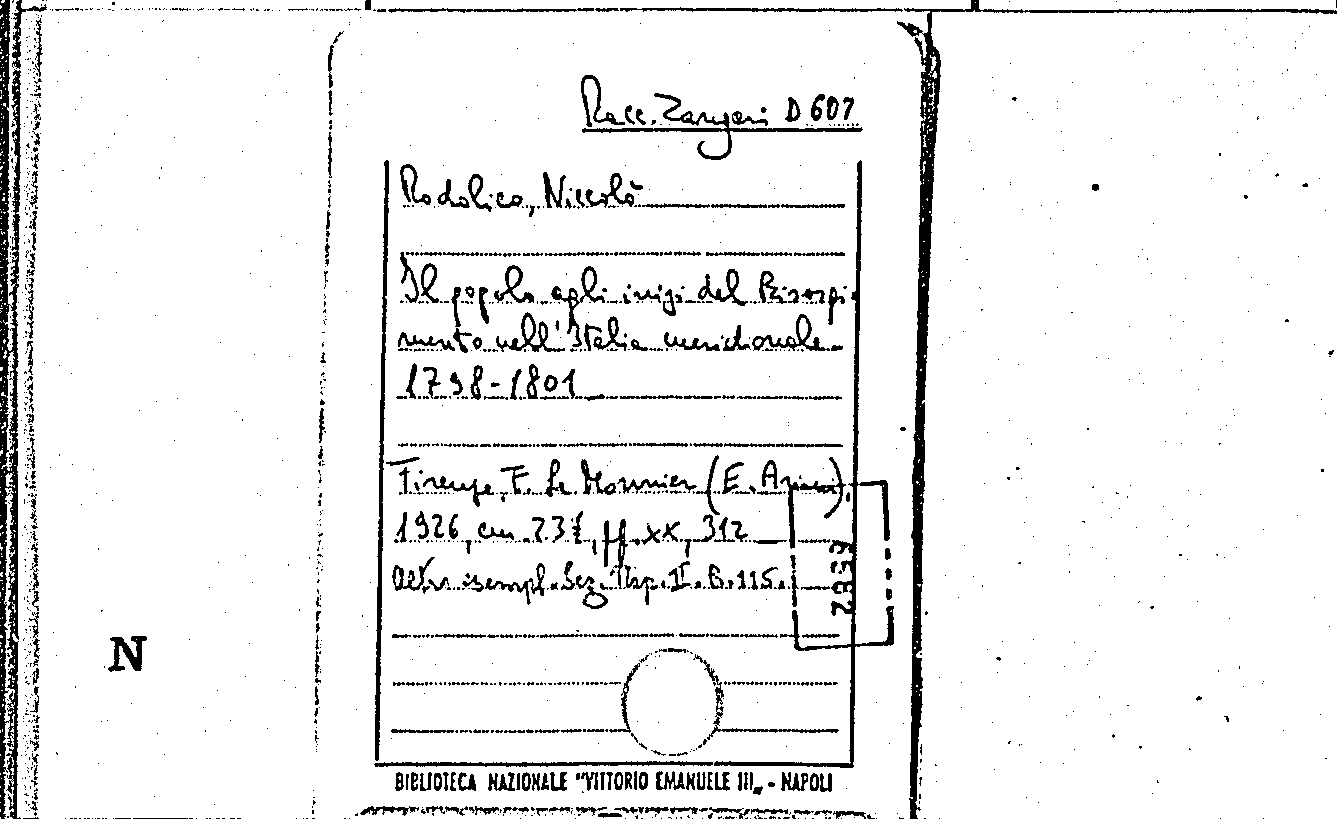 Racc. Zangari D 607
Rodolico, Niccolò
Il popolo agli inizi del Risorgi
mento nell'Italia meridionale
1798-1801
Firenze, F. Le Monnier (E. Ariani),
1926, cm. 23½, pp. xx, 312
altro esempl. Sez. Nap. II. B. 115.
N
BIBLIOTECA NAZIONALE "VITTORIO EMANUELE III„ - NAPOLI